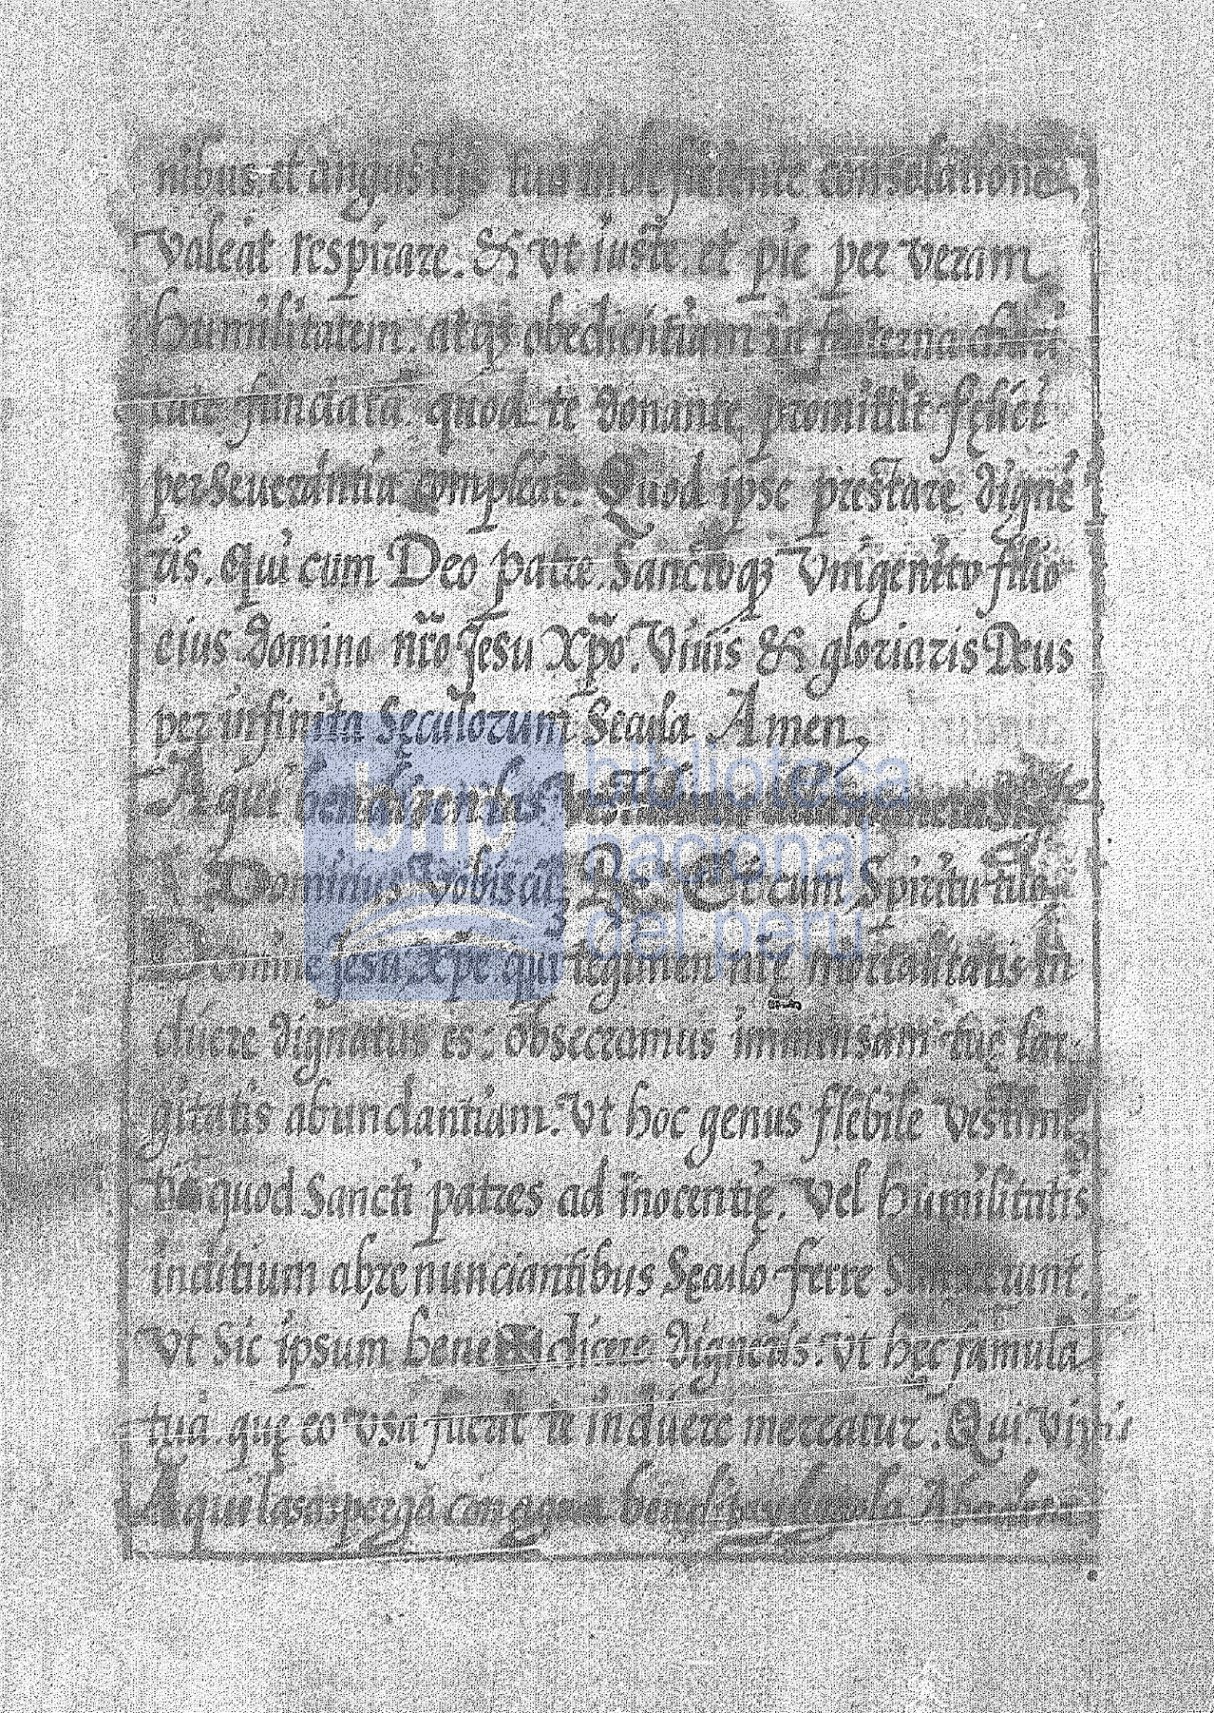 nibus et angustijs tuo indeficiente consolatione
Valeat respirare. & vt iuste et pie per veram
humilitatem. atq₃ obedientiam in fraterna chari
tate fundata quod te donante promittit fęlici
perseuerantia compleat. Quod ipse prestare digne
ris. Qui cum Deo patre. Sanctoq₃ Vnigenito filio
eius domino nr̃o Jesu Xp̃o. Viuis & gloriaris Deus
per infinita Sęculorum Secula Amen,
Aqui
Dominus Vobiscũ, R. Et cum Spiritu tuo
Domine Jesu Xp̃e qui tegimen nrę̃ mortalitatis in
duere dignatus es: obsecramus immensam tuę lar
gitatis abundantiam: Vt hoc genus flebile Vestimẽ
ti quod Sancti patres ad inocentię. Vel humilitatis
inditium abrenunciantibus Sęculo ferre Sanxerunt.
Vt Sic ipsum bene dicere digneris: Vt hęc famula
tua. quę eo vsa fuerit te induere mereatur. Qui. Viuis
Aqui las asperja con agua
bnp
biblioteca
nacional
del perú